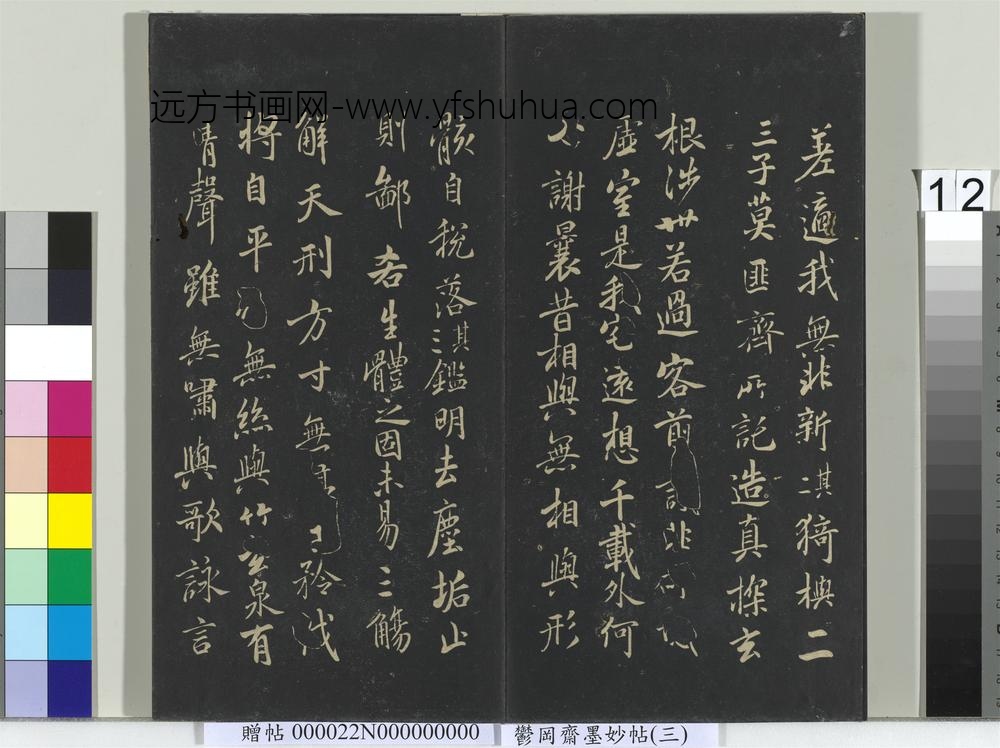 差適我無非新其二猗與二
三子莫匪齊所託造真探玄
根涉世若過客前非
虛室是我宅遠想千載外何
必謝曩昔相與無相與形
骸自稅落其三鑑明去塵垢止
則鄙吝生體之固未易三觴
解天刑方寸無主矜伐
將自平無絲與竹玄泉有
清聲雖無嘯與歌詠言
远方书画网-www.yfshuhua.com
12
贈帖 000022N000000000 鬱岡齋墨妙帖(三)